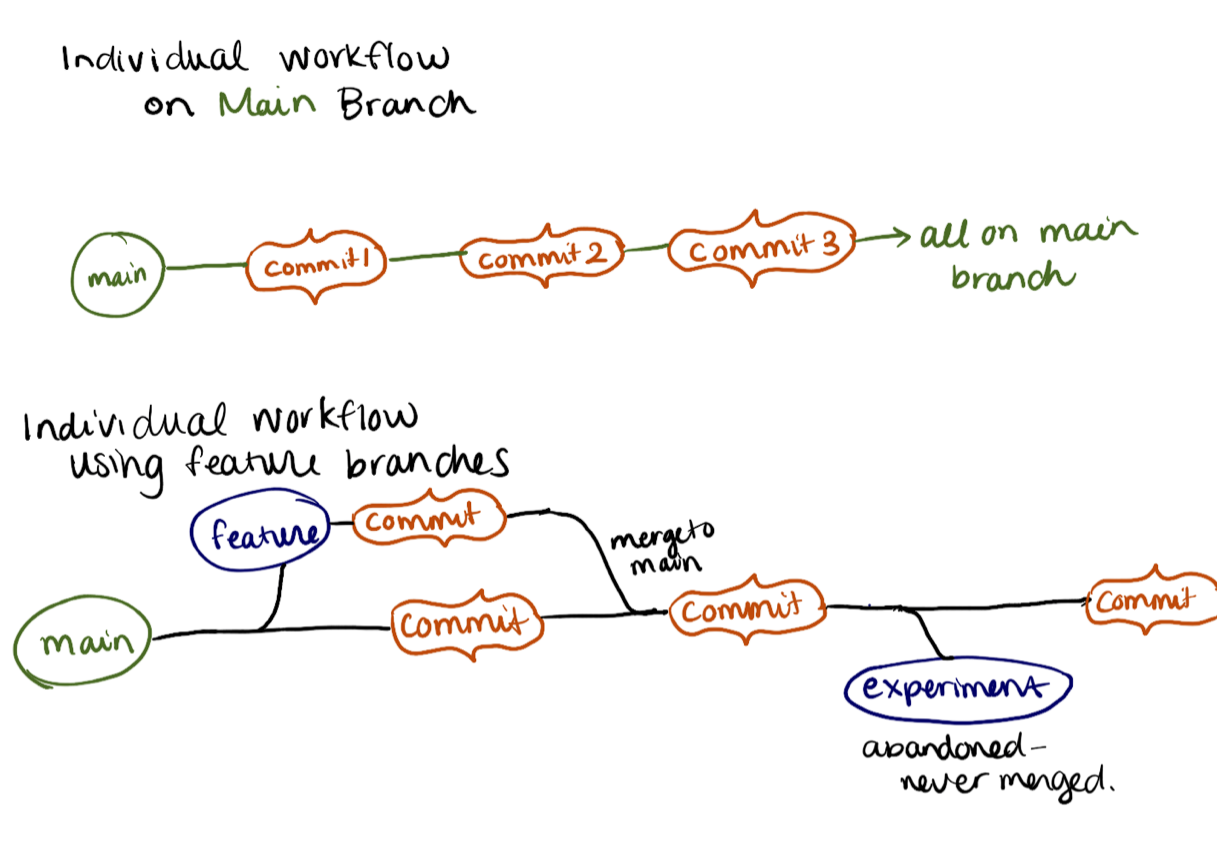 Individual workflow
on Main Branch
main
commit 1
commit 2
commit 3
all on main
branch
Individual workflow
using feature branches
feature
commit
merge to
main
main
commit
commit
commit
experiment
abandoned-
never merged.